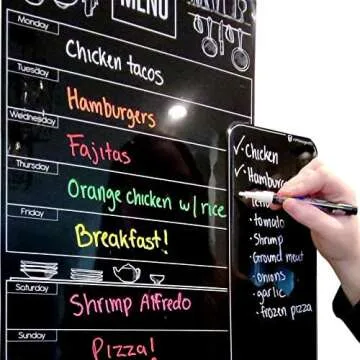 MENU
Monday
Chicken tacos
Tuesday
Hamburgers
Wednesday
Fajitas
Thursday
Orange chicken w/ rice
Friday
Breakfast!
Saturday
Shrimp Alfredo
Sunday
Pizza!
✓ Chicken
✓ Hamburg
• tomato
• Shrimp
• Ground meat
• onions
• garlic
• frozen pizza